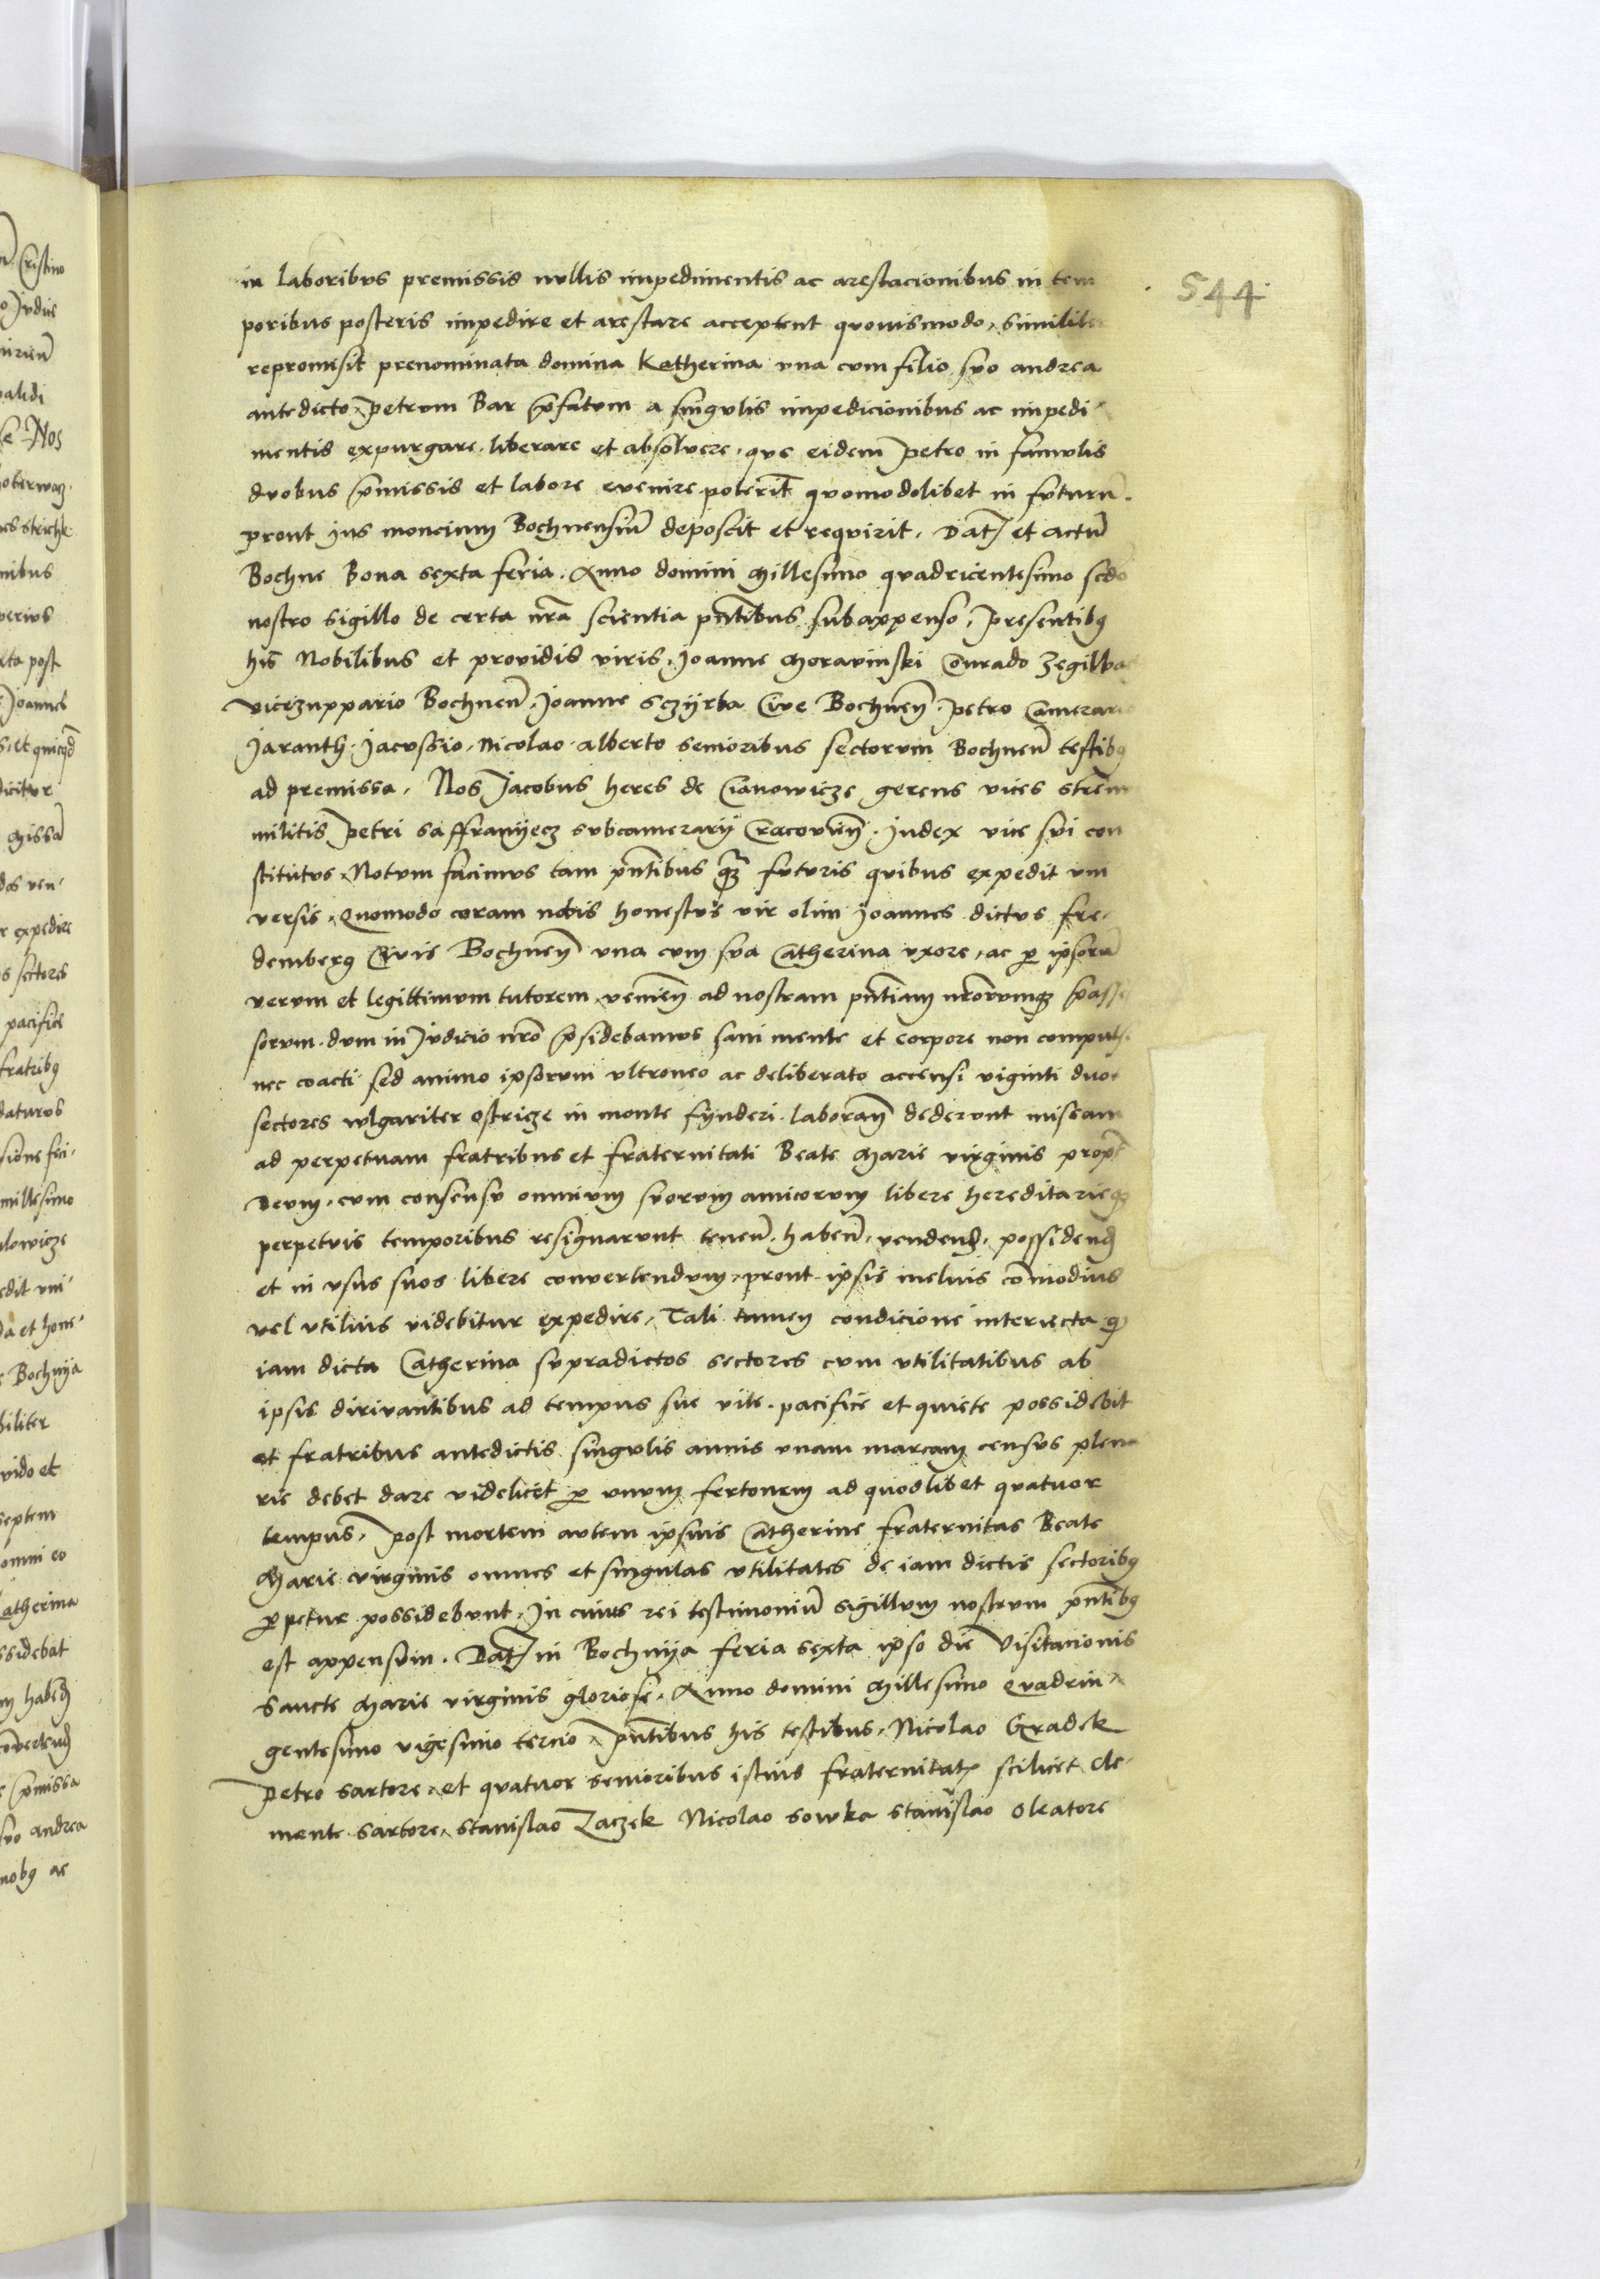 544
in laboribus premissis nullis impedimentis ac arestacionibus in tem
poribus posteris impedire et arestare acceptent quouismodo, similiter
repromisit prenominata domina Katherina vna cum filio suo andrea
antedicto, petrum Bar p̃fatum a singulis impedicionibus ac impedi
mentis expurgare, liberare et absoluere, que eidem petro in famulis
duobus p̃missis et labore euenire poterit̃ quomodolibet in futurũ.
prout jus moncium Bochnensiũ deposcit et requirit. Dat̃ et actũ
Bochne Bona sexta feria. Anno domini Millesimo quadricentesimo scdo
nostro sigillo de certa nr̃a scientia pñtibus subappenso, presentibꝫ
his Nobilibus et prouidis viris, Joanne Morauinski Conrado
vicezuppario Bochneñ, Joanne sczyrba Ciue Bochneñ, petro Camerario
Jaranth, Jacussio, Nicolao, alberto senioribus sectorum Bochneñ testibꝫ
ad premissa. Nos Jacobus heres de Cianowicze gerens vices strem
militis petri saffranyecz subcamerarij Cracouieñ, Judex vice sui con
stitutus, Notum facimus tam pñtibus qꝫ futuris quibus expedit vni
uersis, Quomodo coram nobis honestus vir olim Joannes dictus fre
demberg Ciuis Bochneñ vna cum sua Catherina vxore, ac ꝑ ipsorũ
verum et legittimum tutorem venieñ ad nostram pñtiam nr̃orumqꝫ p̃asse
sorum, dum in Judicio nr̃o p̃sidebamus sani mente et corpore non compulsi
nec coacti sed animo ipsorum vltroneo ac deliberato accensi viginti duos
sectores wlgariter ostricze in monte fynderi laborañ dederunt miseam
ad perpetuam fratribus et fraternitati Beate Marie virginis propt̃
Deum, cum consensu omnium suorum amicorum libere hereditarieqꝫ
perpetuis temporibus resignarunt teneñ, habeñ, vendend, possidend
et in vsus suos libere conuertendum, prout ipsis melius cõmodius
vel vtilius videbitur expedire, Tali tamen condicione interiecta ꝙ
iam dicta Catherina supradictos sectores cum vtilitatibus ab
ipsis diriuantibus ad tempus sue vite pacifice et quiete possidebit
et fratribus antedictis singulis annis vnam marcam census plena
rie debet dare videlicet ꝑ vnum fertonem ad quodlibet quatuor
tempus, post mortem autem ipsius Catherine fraternitas Beate
Marie virginis omnes et singulas vtilitates de iam dictis sectoribꝫ
ꝑpetue possidebunt, In cuius rei testimoniũ sigillum nostrum pñtibꝫ
est appensum. Dat̃ in Bochnya feria sexta ipso die Visitacionis
Sancte Marie virginis gloriose. Anno domini Millesimo Quadrin
gentesimo vigesimo tercio, pñtibus his testibus, Nicolao Gradek
Petro sartore, et quatuor senioribus istius fraternitatꝭ scilicet cle
mente sartore, stanislao Zaczek Nicolao sowka stanislao oleatore